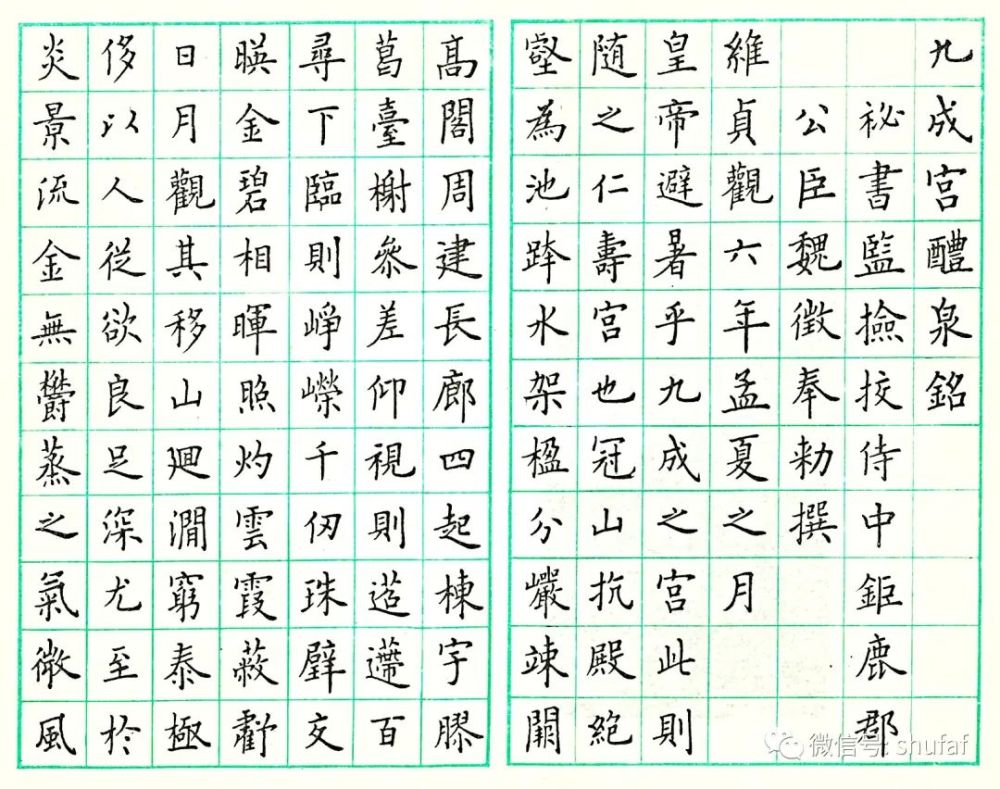 九成宮醴泉銘
祕書監撿挍侍中鉅鹿郡
公臣魏徵奉勅撰
維貞觀六年孟夏之月
皇帝避暑乎九成之宮此則
随之仁壽宮也冠山抗殿絶
壑為池跨水架楹分巖竦闕
髙閣周建長廊四起棟宇膠
葛臺榭叅差仰視則迢遰百
尋下臨則崢嶸千仞珠璧交
暎金碧相暉照灼雲霞蔽虧
日月觀其移山廻澗窮泰極
侈以人從欲良足深尤至於
炎景流金無欝蒸之氣微風
微信号: shufaf